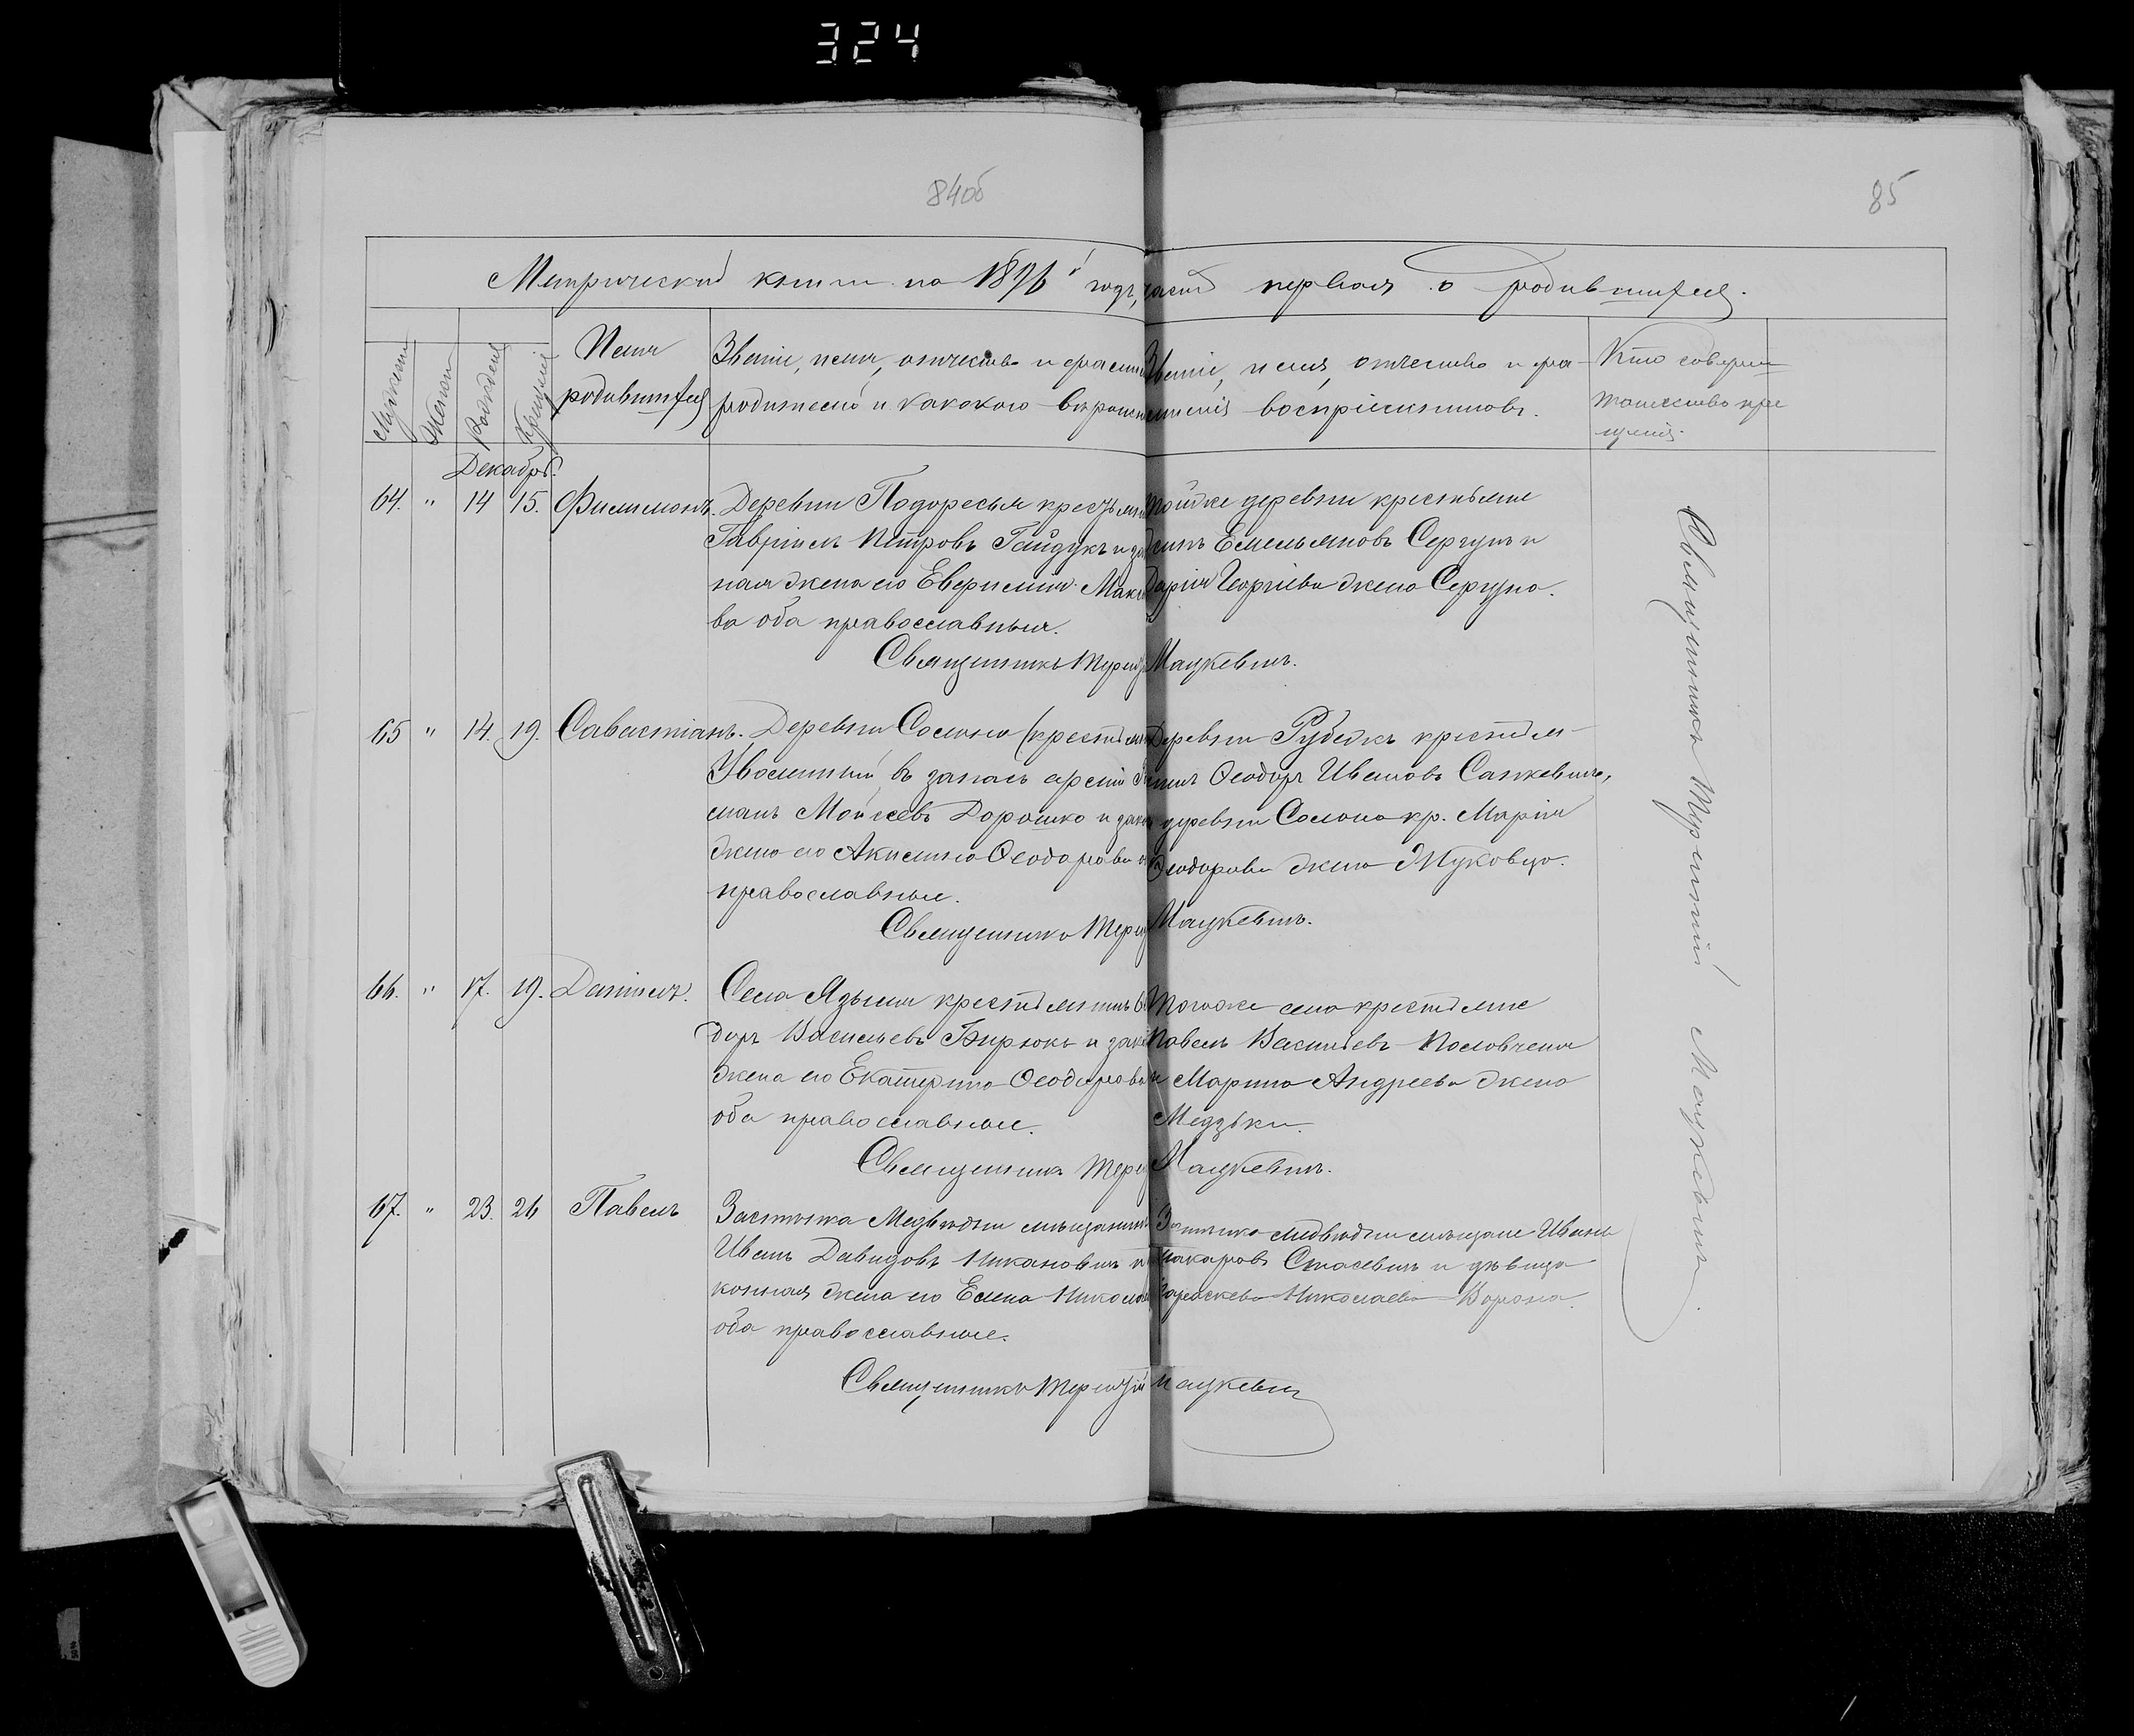 324
84об
85
Метрической книги на 1896 й годъ, часть первая о родившихся.
Мужеск
Женск
Рожденія
Крещенія
Имя
родившихся
Званіе, имя, отчество и фамилія
родителей и какого вѣроиспо
Званіе, имя, отчество и фа-
милія воспріемниковъ.
Кто совершал
таинство кре
щенія.
Декабрь.
64. " 14 15. Филимонъ.
Деревни Подоресья крестьянинъ
Гавріилъ Петровъ Гайдукъ и за
ная жена его Евфимія Макс
ва оба православные.
Священникъ Терентій
Тойже деревни крестьяне
Емельяновъ Сергунъ и
Дарія Георгіева жена Сергуна.
Мацкевичъ.
65 " 14. 19. Савастіанъ.
Деревни Солоно (крестьян
Уволенный въ запасъ арміи
Моисеевъ Дорошко и зако
жена его Акилина Ѳеодорова о
православные.
Священникъ Терен
Деревни Рубежъ крестья-
нинъ Ѳеодоръ Ивановъ Санкевичъ,
деревни Солоно кр. Марія
Ѳеодорова жена Жуковца.
Мацкевичъ.
66. " 17. 19. Даніилъ.
Села Языля крестьянинъ Ѳе
доръ Васильевъ Бирюкъ и зако
жена его Екатерина Ѳеодорова
оба православные.
Священникъ Терен
Тогоже села крестьяне
Павелъ Васильевъ
и Марина Андреева жена
Мацкевичъ.
67. " 23. 26 Павелъ
Застѣнка Медвѣдни мѣщанинъ
Иванъ Давидовъ Никановичъ и за
конная жена его Елена Николае
оба православные.
Священникъ Терентій
Застѣнка Медвѣдни мѣщане Иванъ
Макаровъ Стасевичъ и дѣвица
Параскева Николаева Ворона.
Мацкевичъ
Священникъ Терентій Мацкевичъ.